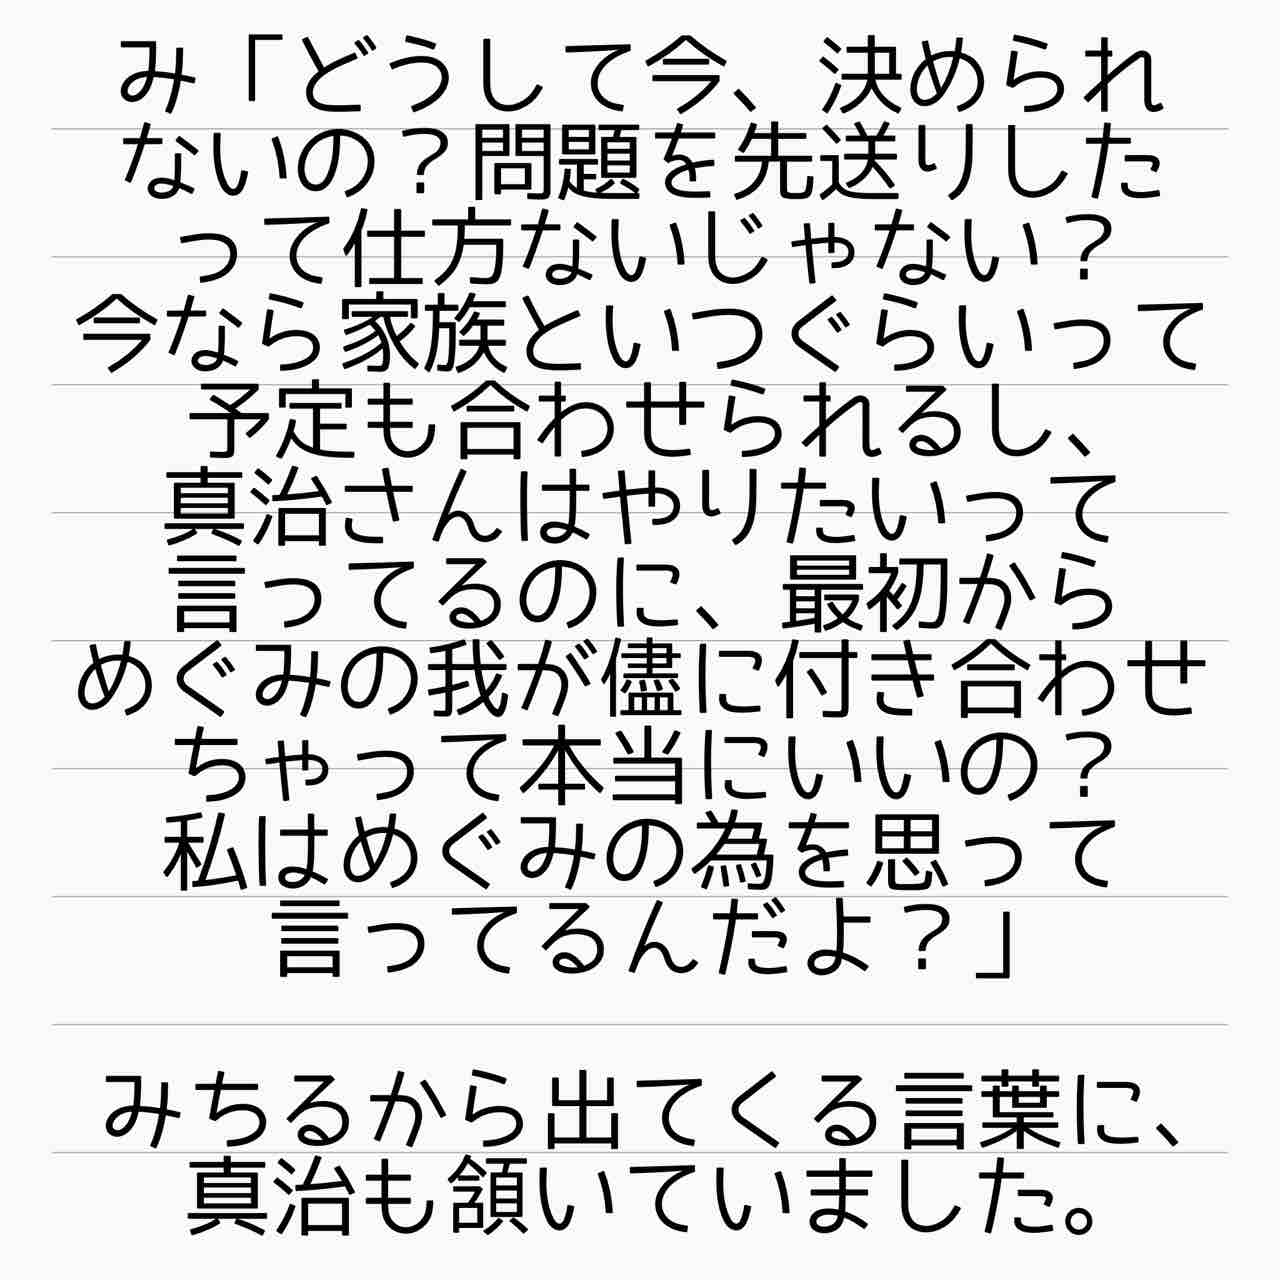 み「どうして今、決められ
ないの？問題を先送りした
って仕方ないじゃない？
今なら家族といつぐらいって
予定も合わせられるし、
真治さんはやりたいって
言ってるのに、最初から
めぐみの我が儘に付き合わせ
ちゃって本当にいいの？
私はめぐみの為を思って
言ってるんだよ？」
みちるから出てくる言葉に、
真治も頷いていました。